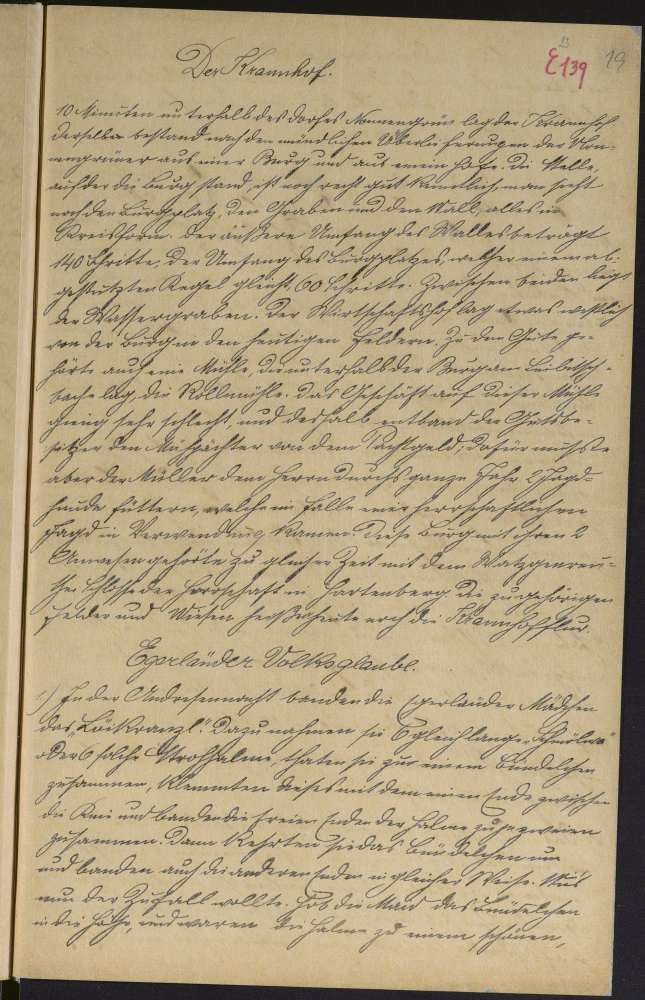 13
E 139 19
Der Krannhof.
10 Minuten unterhalb des Dorfes Nonnengrün lag der Krannhof
derselbe bestand nach den mündlichen Überlieferungen der Non-
nengrüner aus einer Burg und aus einem Hofe. Die Stelle,
auf der die Burg stand, ist noch recht gut kenntlich, man sieht
noch den Burgplatz, den Graben und den Wall, alles in
Kreisform. Der äußere Umfang des Walles beträgt
140 Schritte. Der Umfang des Burgplatzes, welcher einem ab-
gestutzten Kegel gleicht, 60 Schritte. Zwischen beiden liegt
der Wassergraben. Der Wirtschaftshof lag etwas westlich
von der Burg in den heutigen Feldern. Zu dem Gute ge-
hörte auch eine Mühle, die unterhalb der Burg am Leibitsch-
bache lag, die Kollmühle. Das Geschäft auf dieser Mühle
gieng sehr schlecht, und deshalb entband der Gutsbe-
sitzer den Mühlpächter von dem Pachtgeld; dafür musste
aber der Müller dem Herrn durchs ganze Jahr 2 Jagd-
hunde füttern, welche im Falle einer herrschaftlichen
Jagd in Verwendung kamen. Diese Burg mit ihren 2
Anwesen gehörte zu gleicher Zeit mit dem Watzgenreu-
ther Schlosse der Herrschaft in Hartenberg. Die zugehörigen
Felder und Wiesen heißen heute noch die Krannhofflur.
Egerländer Volksglaube.
1.) In der Andreasnacht banden die Egerländer Mädchen
das "Löikranzl". Dazu nahmen sie 6 gleich lange "Schmöln"
oder 6 solche Strohhalme, thaten sie zu einem Bündelchen
zusammen, klemmten dieses mit dem einen Ende zwischen
die Knie und banden die freien Enden der Halme zu je zweien
zusammen. Dann kehrten sie das Bündelchen um
und banden auch die anderen Enden in gleicher Weise. Wie
nun der Zufall wollte. Hob die Maid das Bündelchen
in die Höhe, und waren die Halme zu einem schönen,